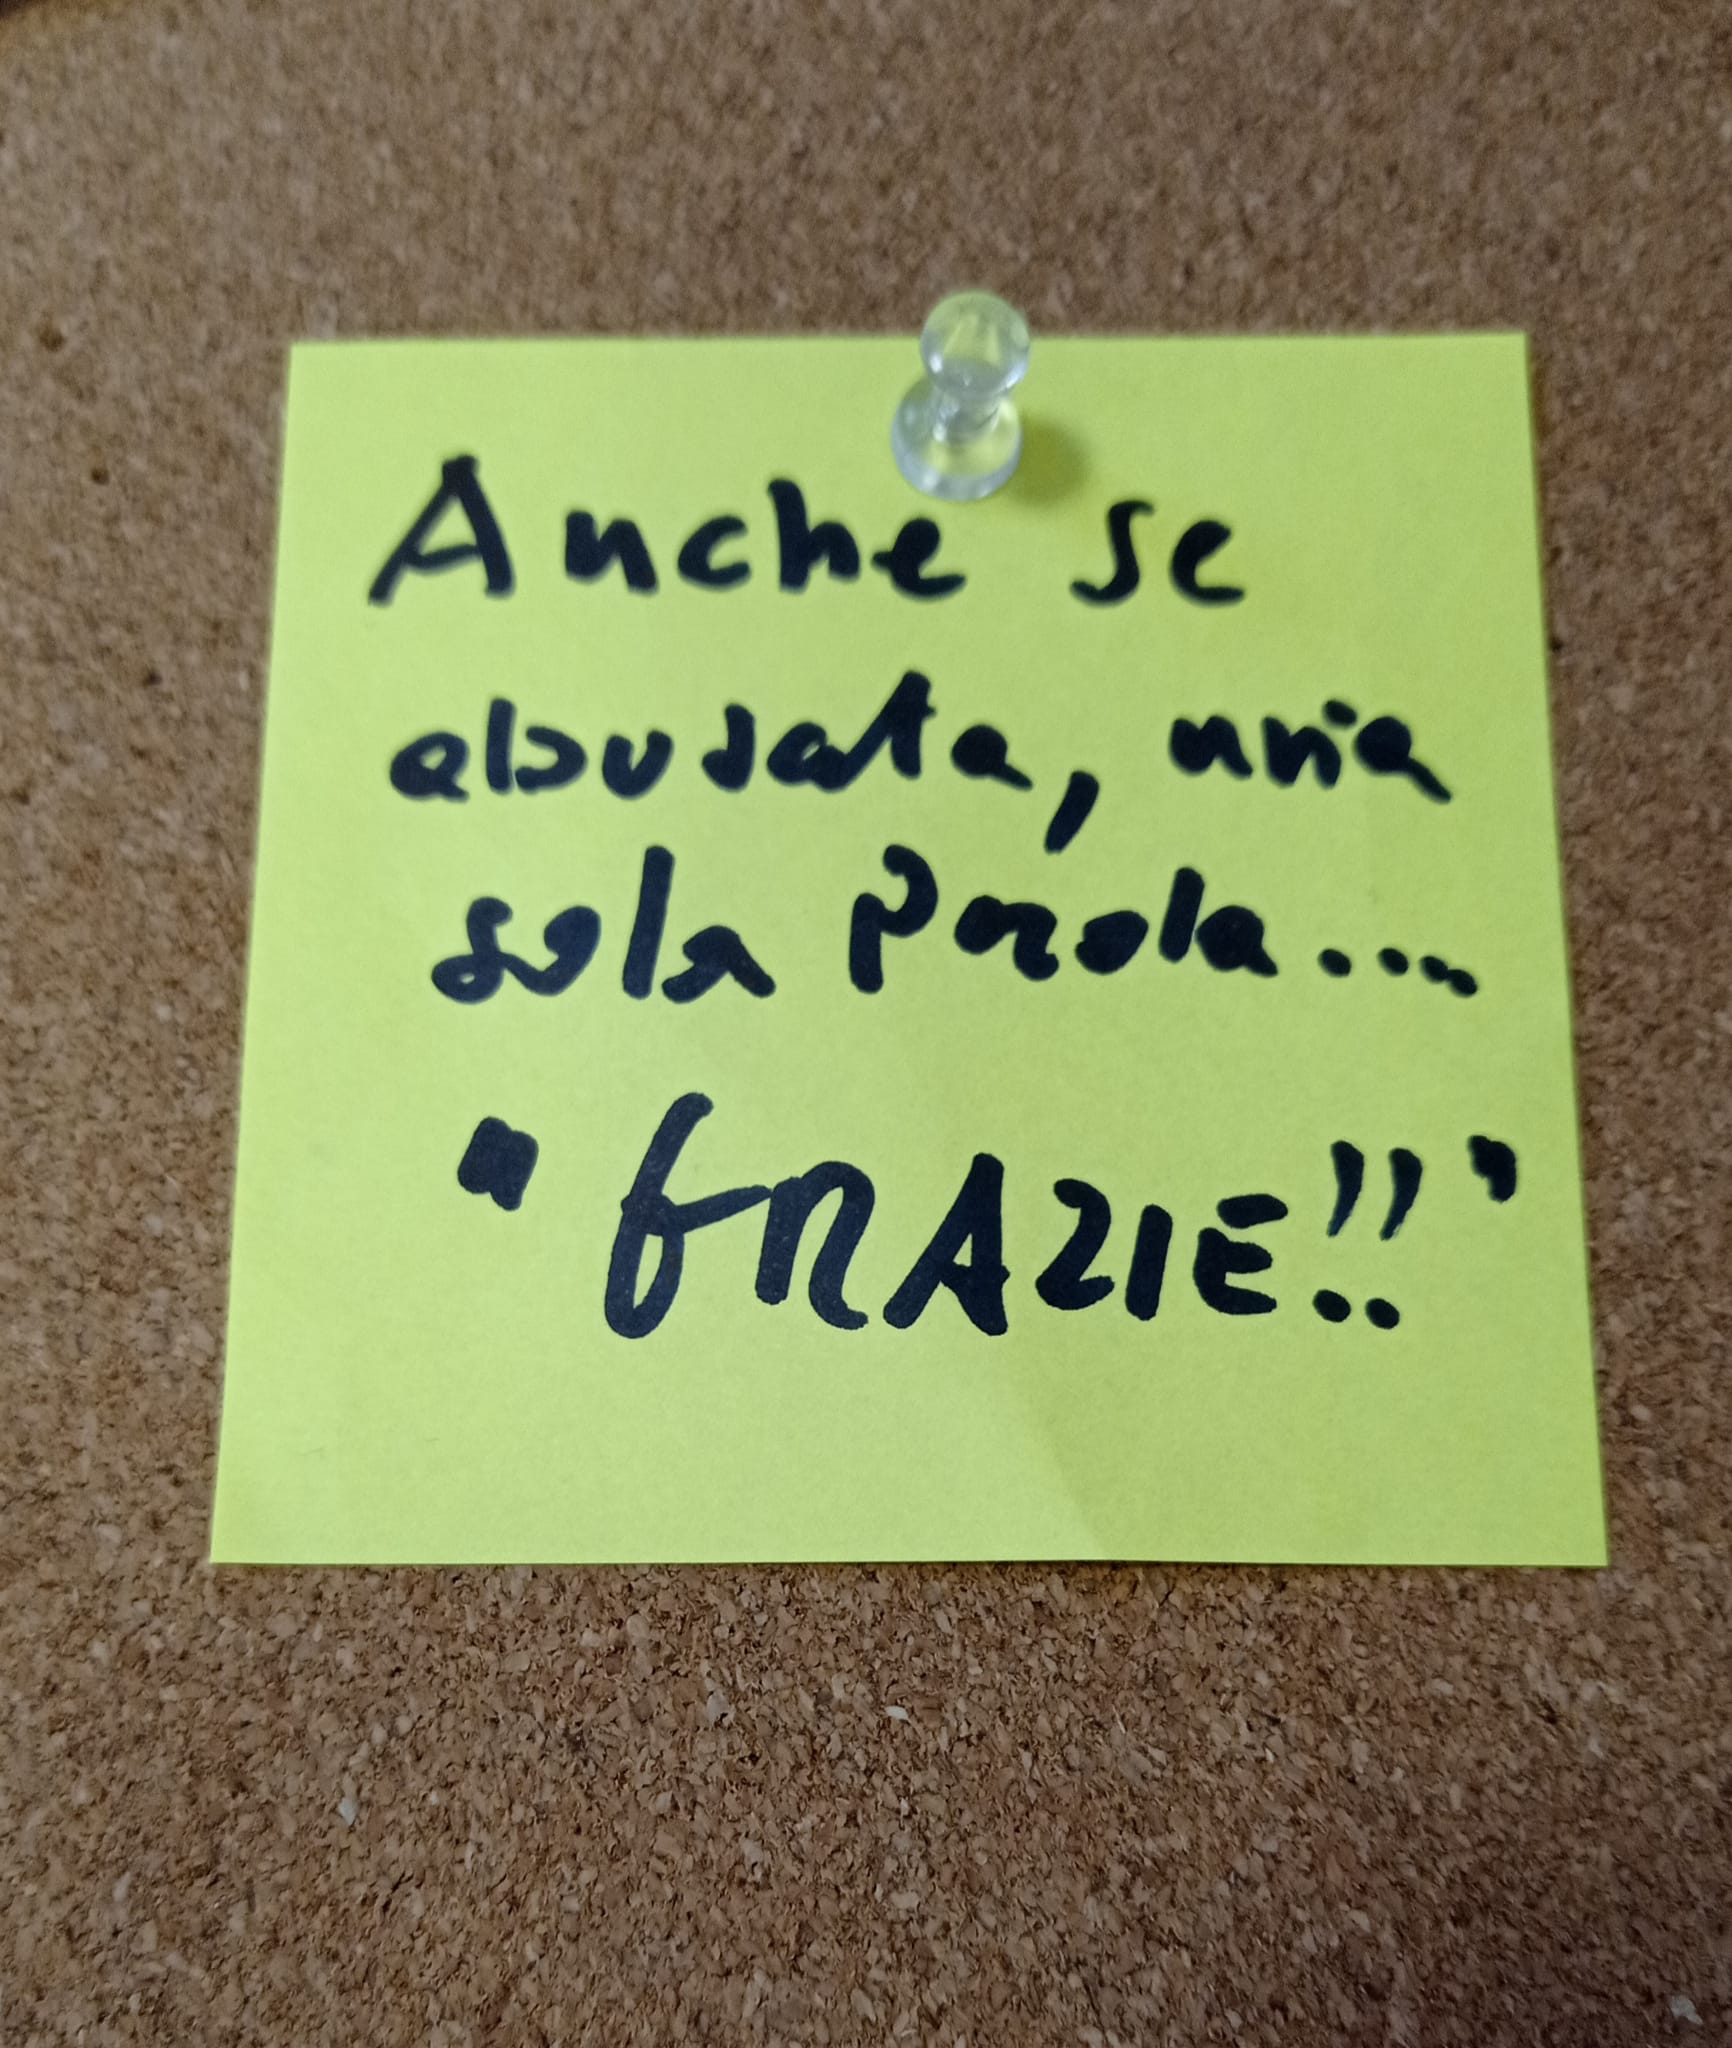 Anche se
abusata, una
sola parola....
"GRAZIE!!"